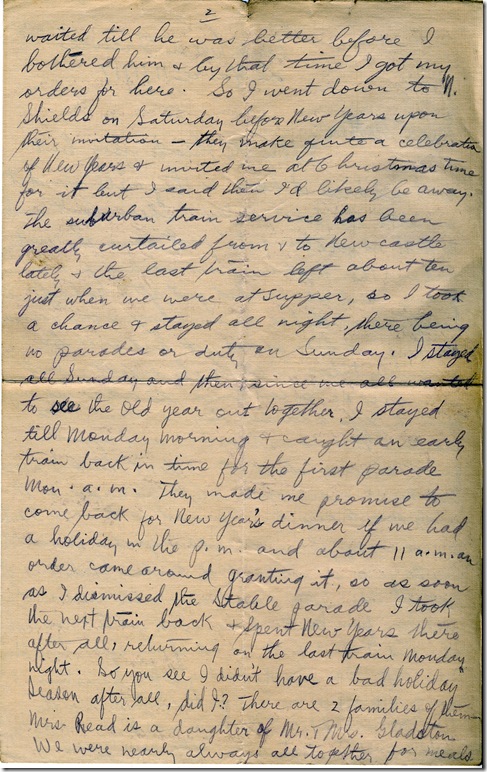 2
waited till he was better before I
bothered him & by that time I got my
orders for here. So I went down to N.
Shields on Saturday before New Years upon
their invitation – they make quite a celebration
of New Years & invited me at Christmas time
for it but I said then I'd likely be away.
The suburban train service has been
greatly curtailed from & to Newcastle
lately & the last train left about ten
just when we were at supper, so I took
a chance & stayed all night, there being
no parades or duty on Sunday. I stayed
all Sunday and then since we all wanted
to see the old year out together, I stayed
till Monday morning & caught an early
train back in time for the first parade
Mon. a.m. They made me promise to
come back for New Year's dinner if we had
a holiday in the p.m. and about 11 a.m. an
order came around granting it, so as soon
as I dismissed the stable parade I took
the next train back & spent New Years there
after all, returning on the last train Monday
night. So you see I didn't have a bad holiday
season after all, did I? There are 2 families of them
Mrs. Read is a daughter of Mr. & Mrs. Gladston
We were nearly always all together for meals